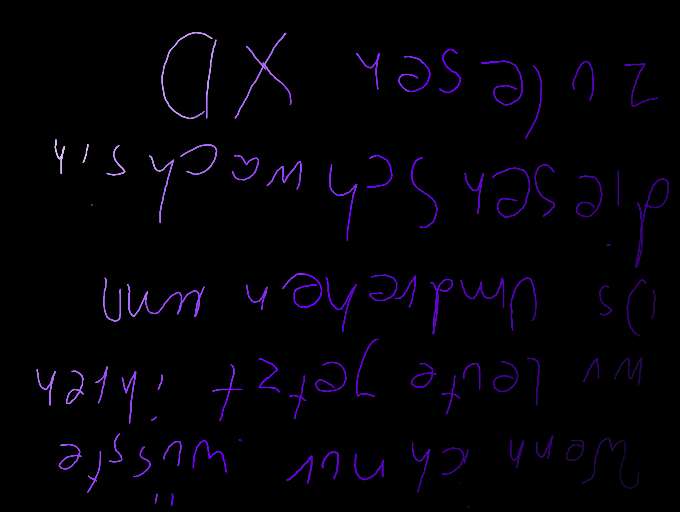 Wenn ich nur wüsste
wie leute jetzt ihren
umdrehen um
diesen Schwachsinn
zu lesen XD